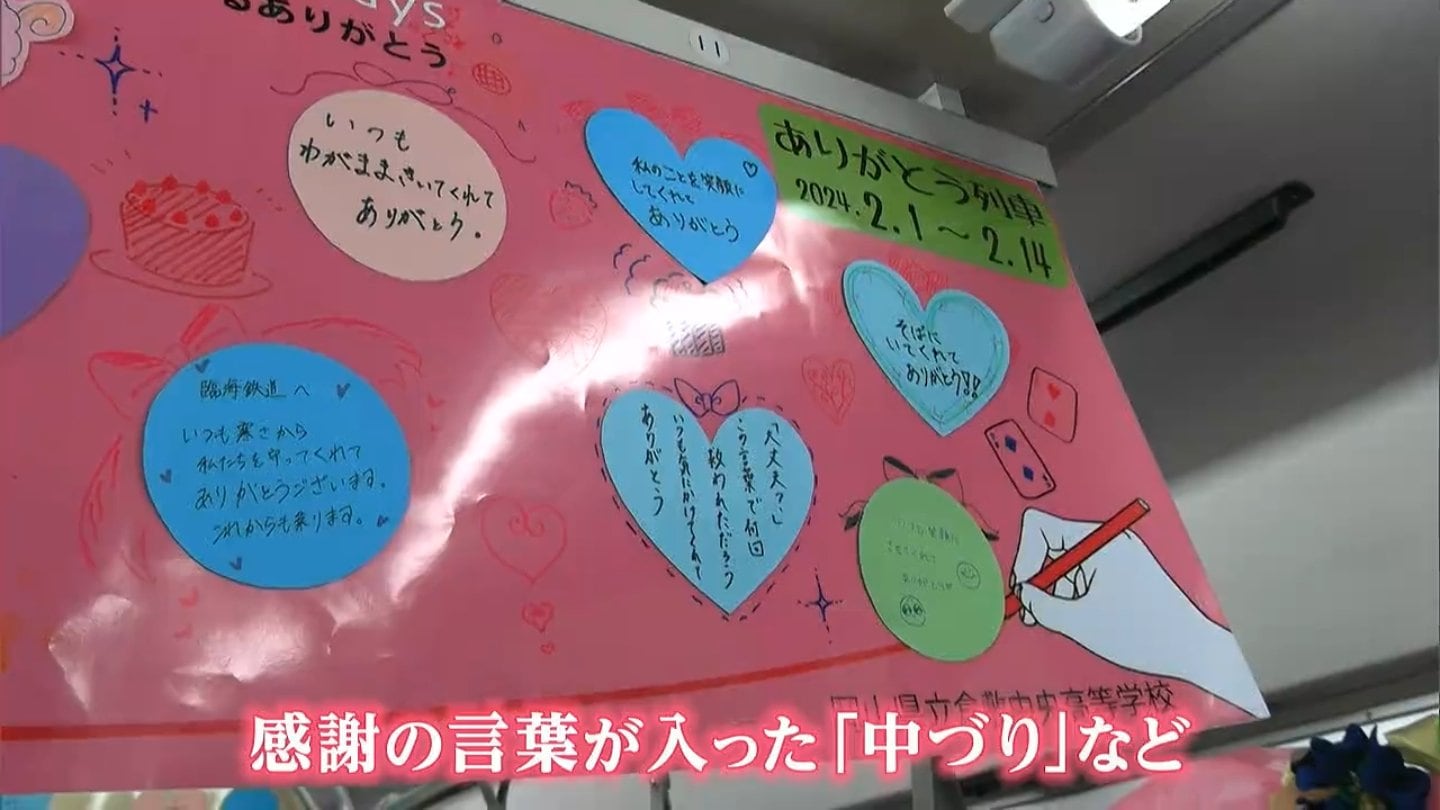 ays
るありがとう
11
いつも
わがままきいてくれて
ありがとう。
私のことを笑顔に
してくれて
ありがとう
ありがとう列車
2024.2.1～2.14
そばに
いてくれて
ありがとう!!
臨海鉄道へ
いつも寒さから
私たちを守ってくれて
ありがとうございます。
これからも乗ります。
「大丈夫?」
この言葉で何回
救われただろう
いつも気にかけてくれて
ありがとう
岡山県立倉敷中央高等学校
感謝の言葉が入った「中づり」など